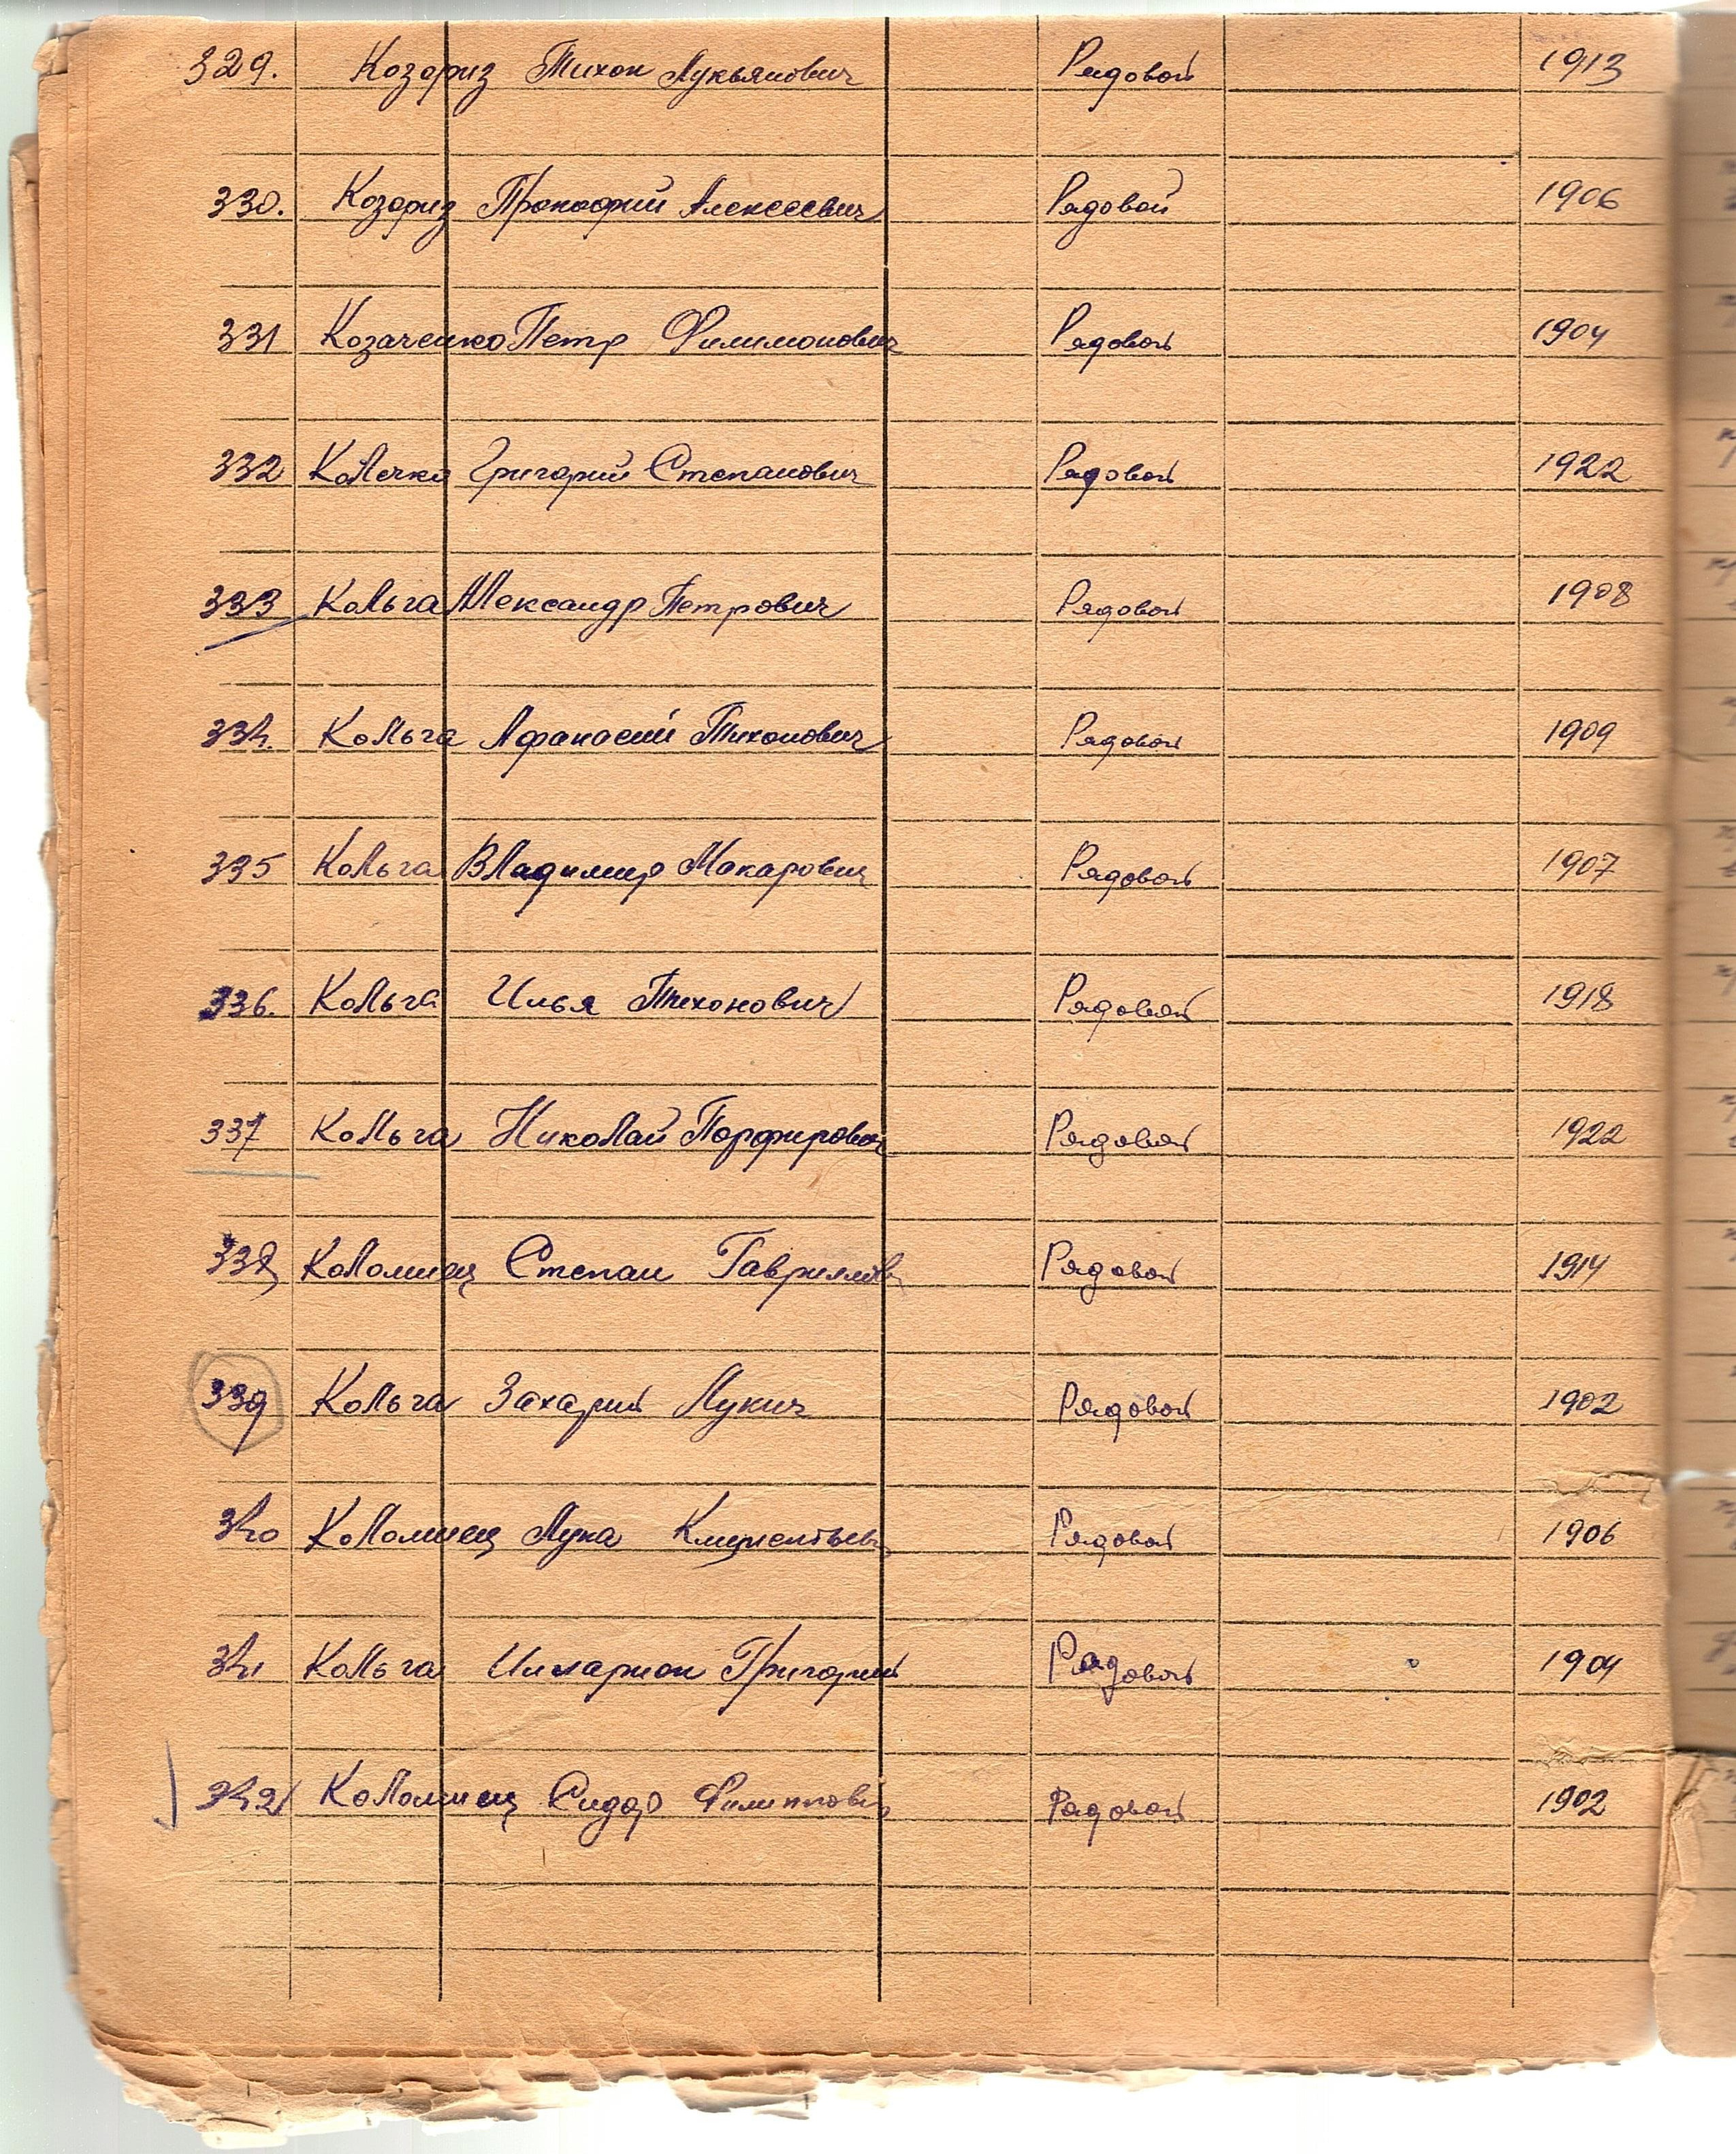 329. Козориз Тихон Лукьянович Рядовой 1913
330. Козориз Прокофий Алексеевич Рядовой 1906
331 Козаченко Петр Филимонович Рядовой 1904
332 Колечко Григорий Степанович Рядовой 1922
333 Кольга Александр Петрович Рядовой 1908
334. Кольга Афанасий Тихонович Рядовой 1909
335 Кольга Владимир Макарович Рядовой 1907
336. Кольга Илья Тихонович Рядовой 1918
337 Кольга Николай Порфирович Рядовой 1922
338 Коломиец Степан Рядовой 1914
339 Кольга Захарий Лукич Рядовой 1902
340 Коломиец Лука Рядовой 1906
341 Кольга Илларион Рядовой 1904
342 Коломиец Сидор Рядовой 1902